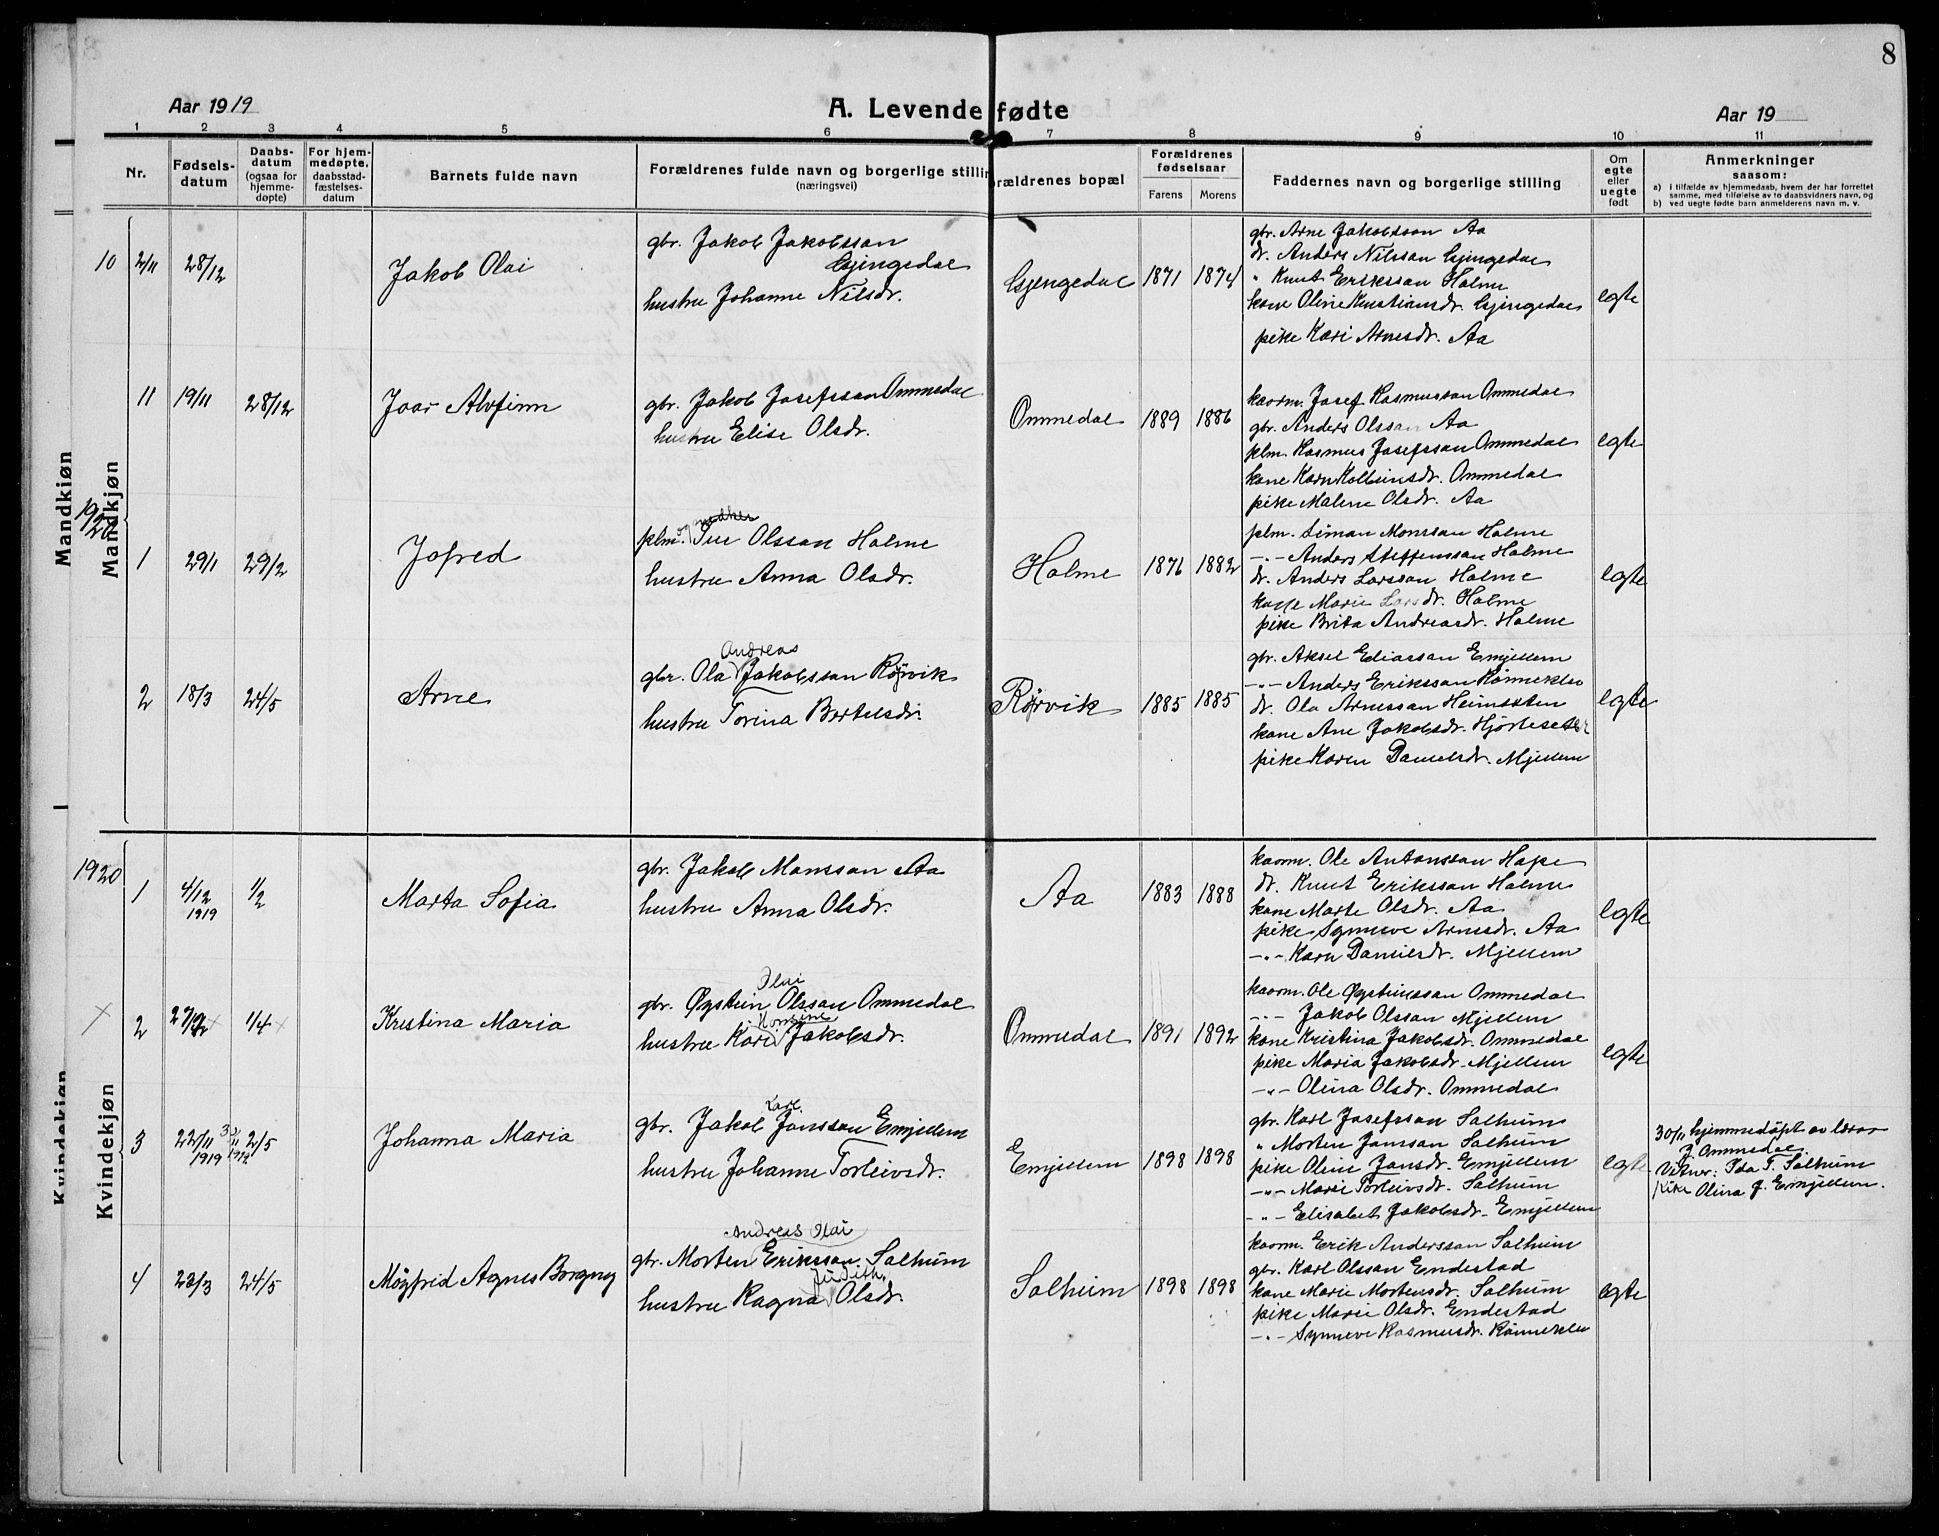 8
Aar 1919
A. Levende fødte
Aar 19
1 2 3 4 5 6 7 8 9 10 11
Nr.
Fødsels-
datum
Daabs-
datum
(ogsaa for
hjemme-
døpte)
For hjem-
medøpte,
daabsstad-
fæstelses-
datum
Barnets fulde navn
Forældrenes fulde navn og borgerlige stillin
(næringsvei)
orældrenes bopæl
Forældrenes
fødselsaar
Farens Morens
Faddernes navn og borgerlige stilling
Om
egte
eller
uegte
født
Anmerkninger
saasom:
a) i tilfælde av hjemmedaab, hvem der har forrettet
samme, med tilføielse av to daabsvidners navn, og
b) ved uegte fødte barn anmelderens navn m. v.
Mandkjøn
Mandkjøn
10 2/11 28/12
Jakob Olai
gbr. Jakob Jakobsson
Gjengedal
hustru Johanne Nilsdr.
Gjengedal 1871 1874
gbr. Arne Jakobsson Aa
dr. Anders Nilsson Gjengedal
" Knut Eriksson Holme
kone Oline Kristiansdr. Gjengedal
pike Kari Arnesdr. Aa
egte
11 19/11 28/12
Joar Alvfinn
gbr. Jakob Josefsson Ommedal
hustru Elise Olsdr.
Ommedal 1889 1886
kaarm. Josef Rasmusson Ommedal
gbr. Anders Olsson Aa
plm. Rasmus Josefsson Ommedal
kone Karn Kolbeinsdr. Ommedal
pike Malene Olsdr. Aa
egte
1920
1 29/1 29/2
Jofred
plm. og snedker Iver Olsson Holme
hustru Anna Olsdr.
Holme 1876 1882
plm. Simon Monsson Holme
-"- Anders Steffensson Holme
dr. Anders Larsson Holme
kone Marie Larsdr. Holme
pike Brita Andreasdr. Holme
egte
2 18/3 24/5
Arne
Andreas
gbr. Ola Jakobsson Rørvik
hustru Torina Bertelsdr.
Rørvik 1885 1885
gbr. Aksel Eliasson Emjellem
-"- Anders Eriksson Rønneklev
dr. Ola Arnesson Heimseten
kone Ane Jakobsdr. Hjorteseter
pike Karen Danielsdr. Mjellem
egte
Kvindekjøn
Kvindekjøn
1920
1 4/12 1919 1/2
Marta Sofia
gbr. Jakob Monsson Aa
hustru Anna Olsdr.
Aa 1883 1888
kaarm. Ole Antonsson Hope
dr. Knut Eriksson Holme
kone Marte Olsdr. Aa
pike Synneve Arnesdr. Aa
-"- Karn Danielsdr. Mjellem
egte
2 27/2 1/4
Kristina Maria
Olai
gbr. Øystein Olsson Ommedal
hustru Kari Jakobsdr.
Ommedal 1891 1892
kaarm. Ole Øysteinsson Ommedal
-"- Jakob Olsson Mjellem
kone Kristina Jakobsdr. Ommedal
pike Maria Jakobsdr. Mjellem
-"- Olina Olsdr. Ommedal
egte
3 22/11 1919 30/11 1919 2/5
Johanna Maria
Karl
gbr. Jakob Jansson Emjellem
hustru Johanne Torleivsdr.
Emjellem 1898 1898
gbr. Karl Josefsson Solheim
" Morten Jansson Solheim
pike Oline Jansdr. Emjellem
-"- Marie Torleivsdr. Solheim
-"- Elisabet Jakobsdr. Emjellem
egte
30/11 hjemmedøpt av lærar
J. Ommedal.
Vitner: Ida T. Solheim
Pike Olina J. Emjellem.
4 23/3 24/5
Møyfrid Agnes Borgny
Andreas Olai
gbr. Morten Eriksson Solheim
Judith
hustru Ragna Olsdr.
Solheim 1898 1898
kaarm. Erik Andersson Solheim
gbr. Karl Olsson Endestad
kone Marie Mortensdr. Solheim
pike Marie Olsdr. Endestad
-"- Synneve Rasmusdr. Rønneklev
egte